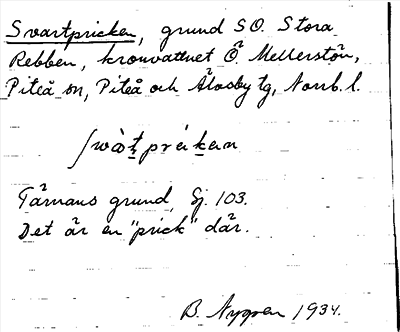 Svartpricken, grund SO. Stora
Rebben, kronvattnet Ö. Mellerstön,
Piteå sn, Piteå och Älvsby tg, Norrb. l.
Tärnans grund, Sj. 103.
Det är en "prick" där.
B. Nygren 1934.